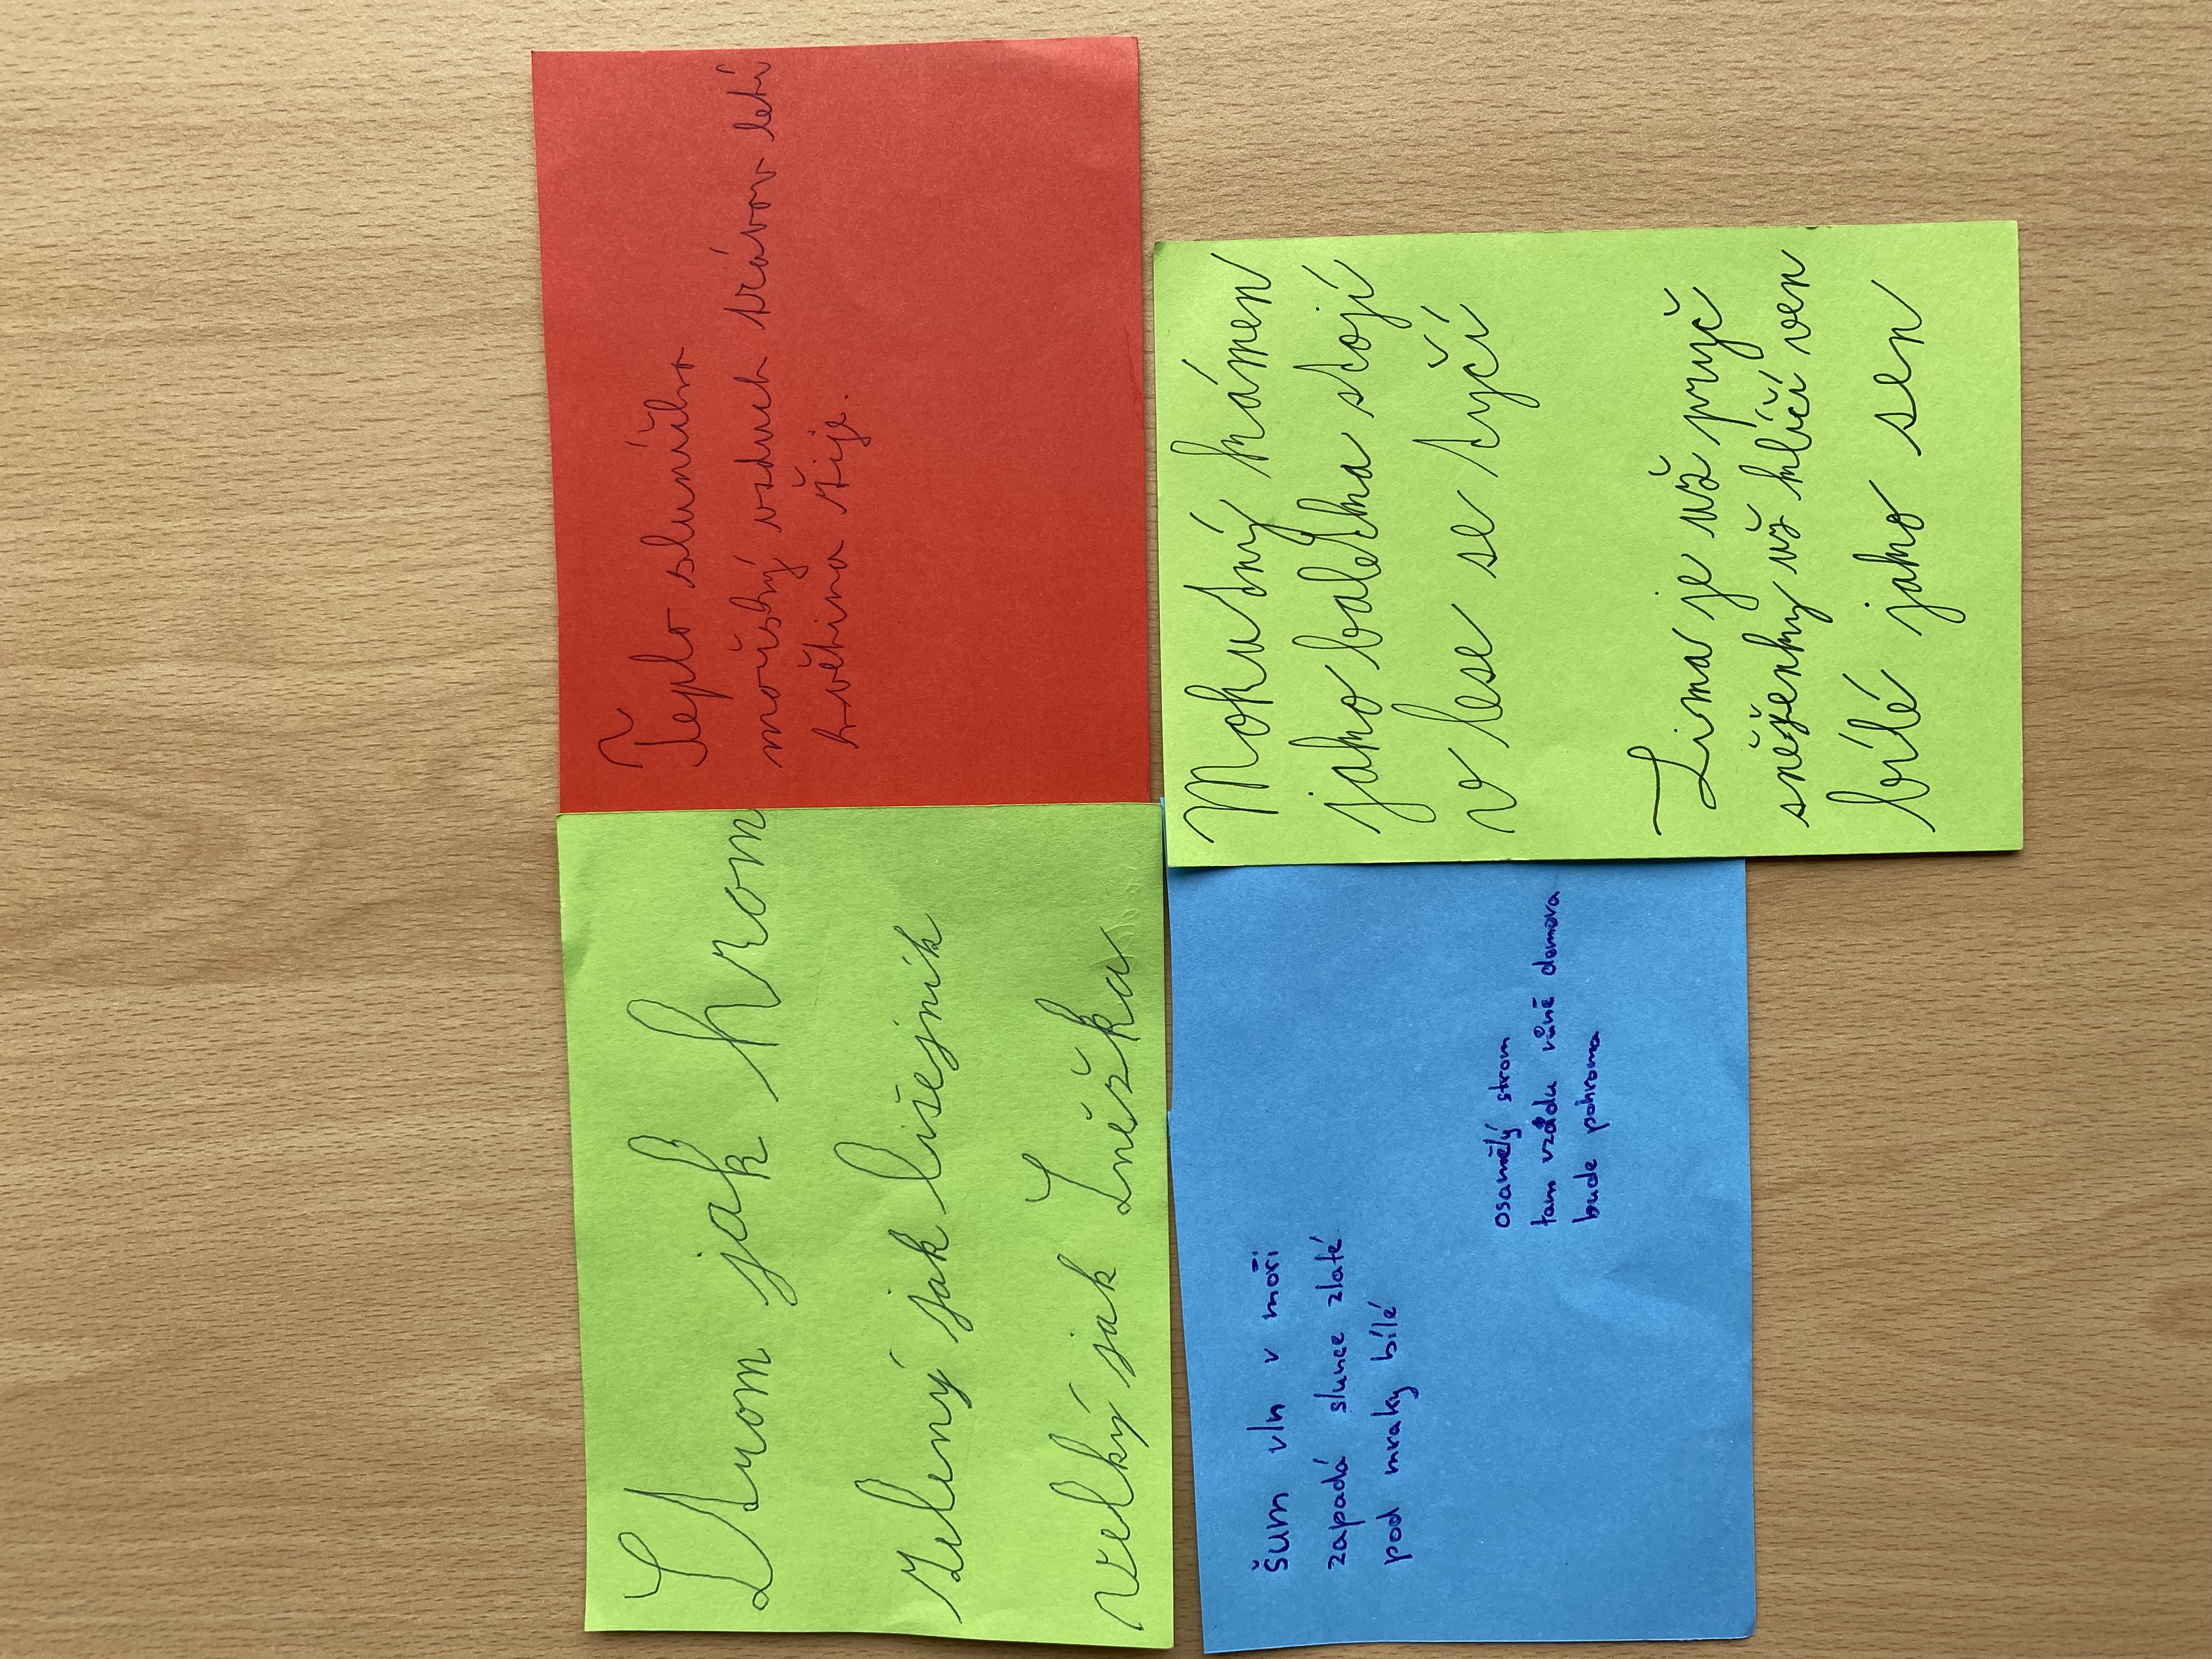 Strom jak hrom
zelený jak lišejník
velký jak Sněžka
Teplo sluníčko
mořský vzduch trávou letí
květina žije.
šum vln v moři
zapadá slunce zlaté
pod mraky bílé
osamělý strom
tam vzadu vůně domova
bude pohroma
Mohutný kámen
jako baletka stojí
v lese se tyčí
Zima je už pryč
sněženky už klíčí ven
bílé jako sen